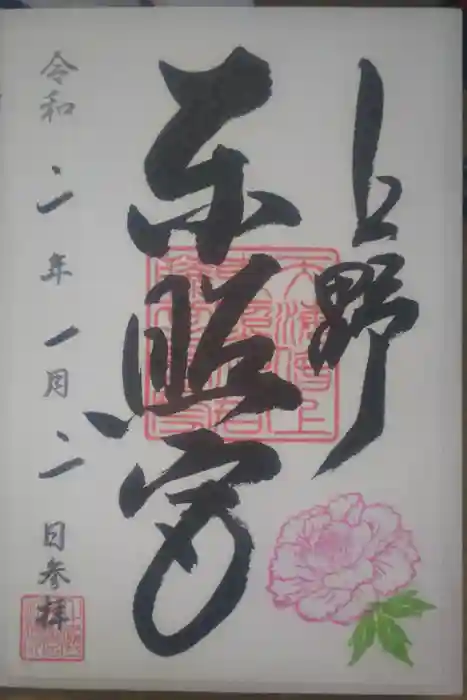 上野
東照宮
令和二年一月二日参拝